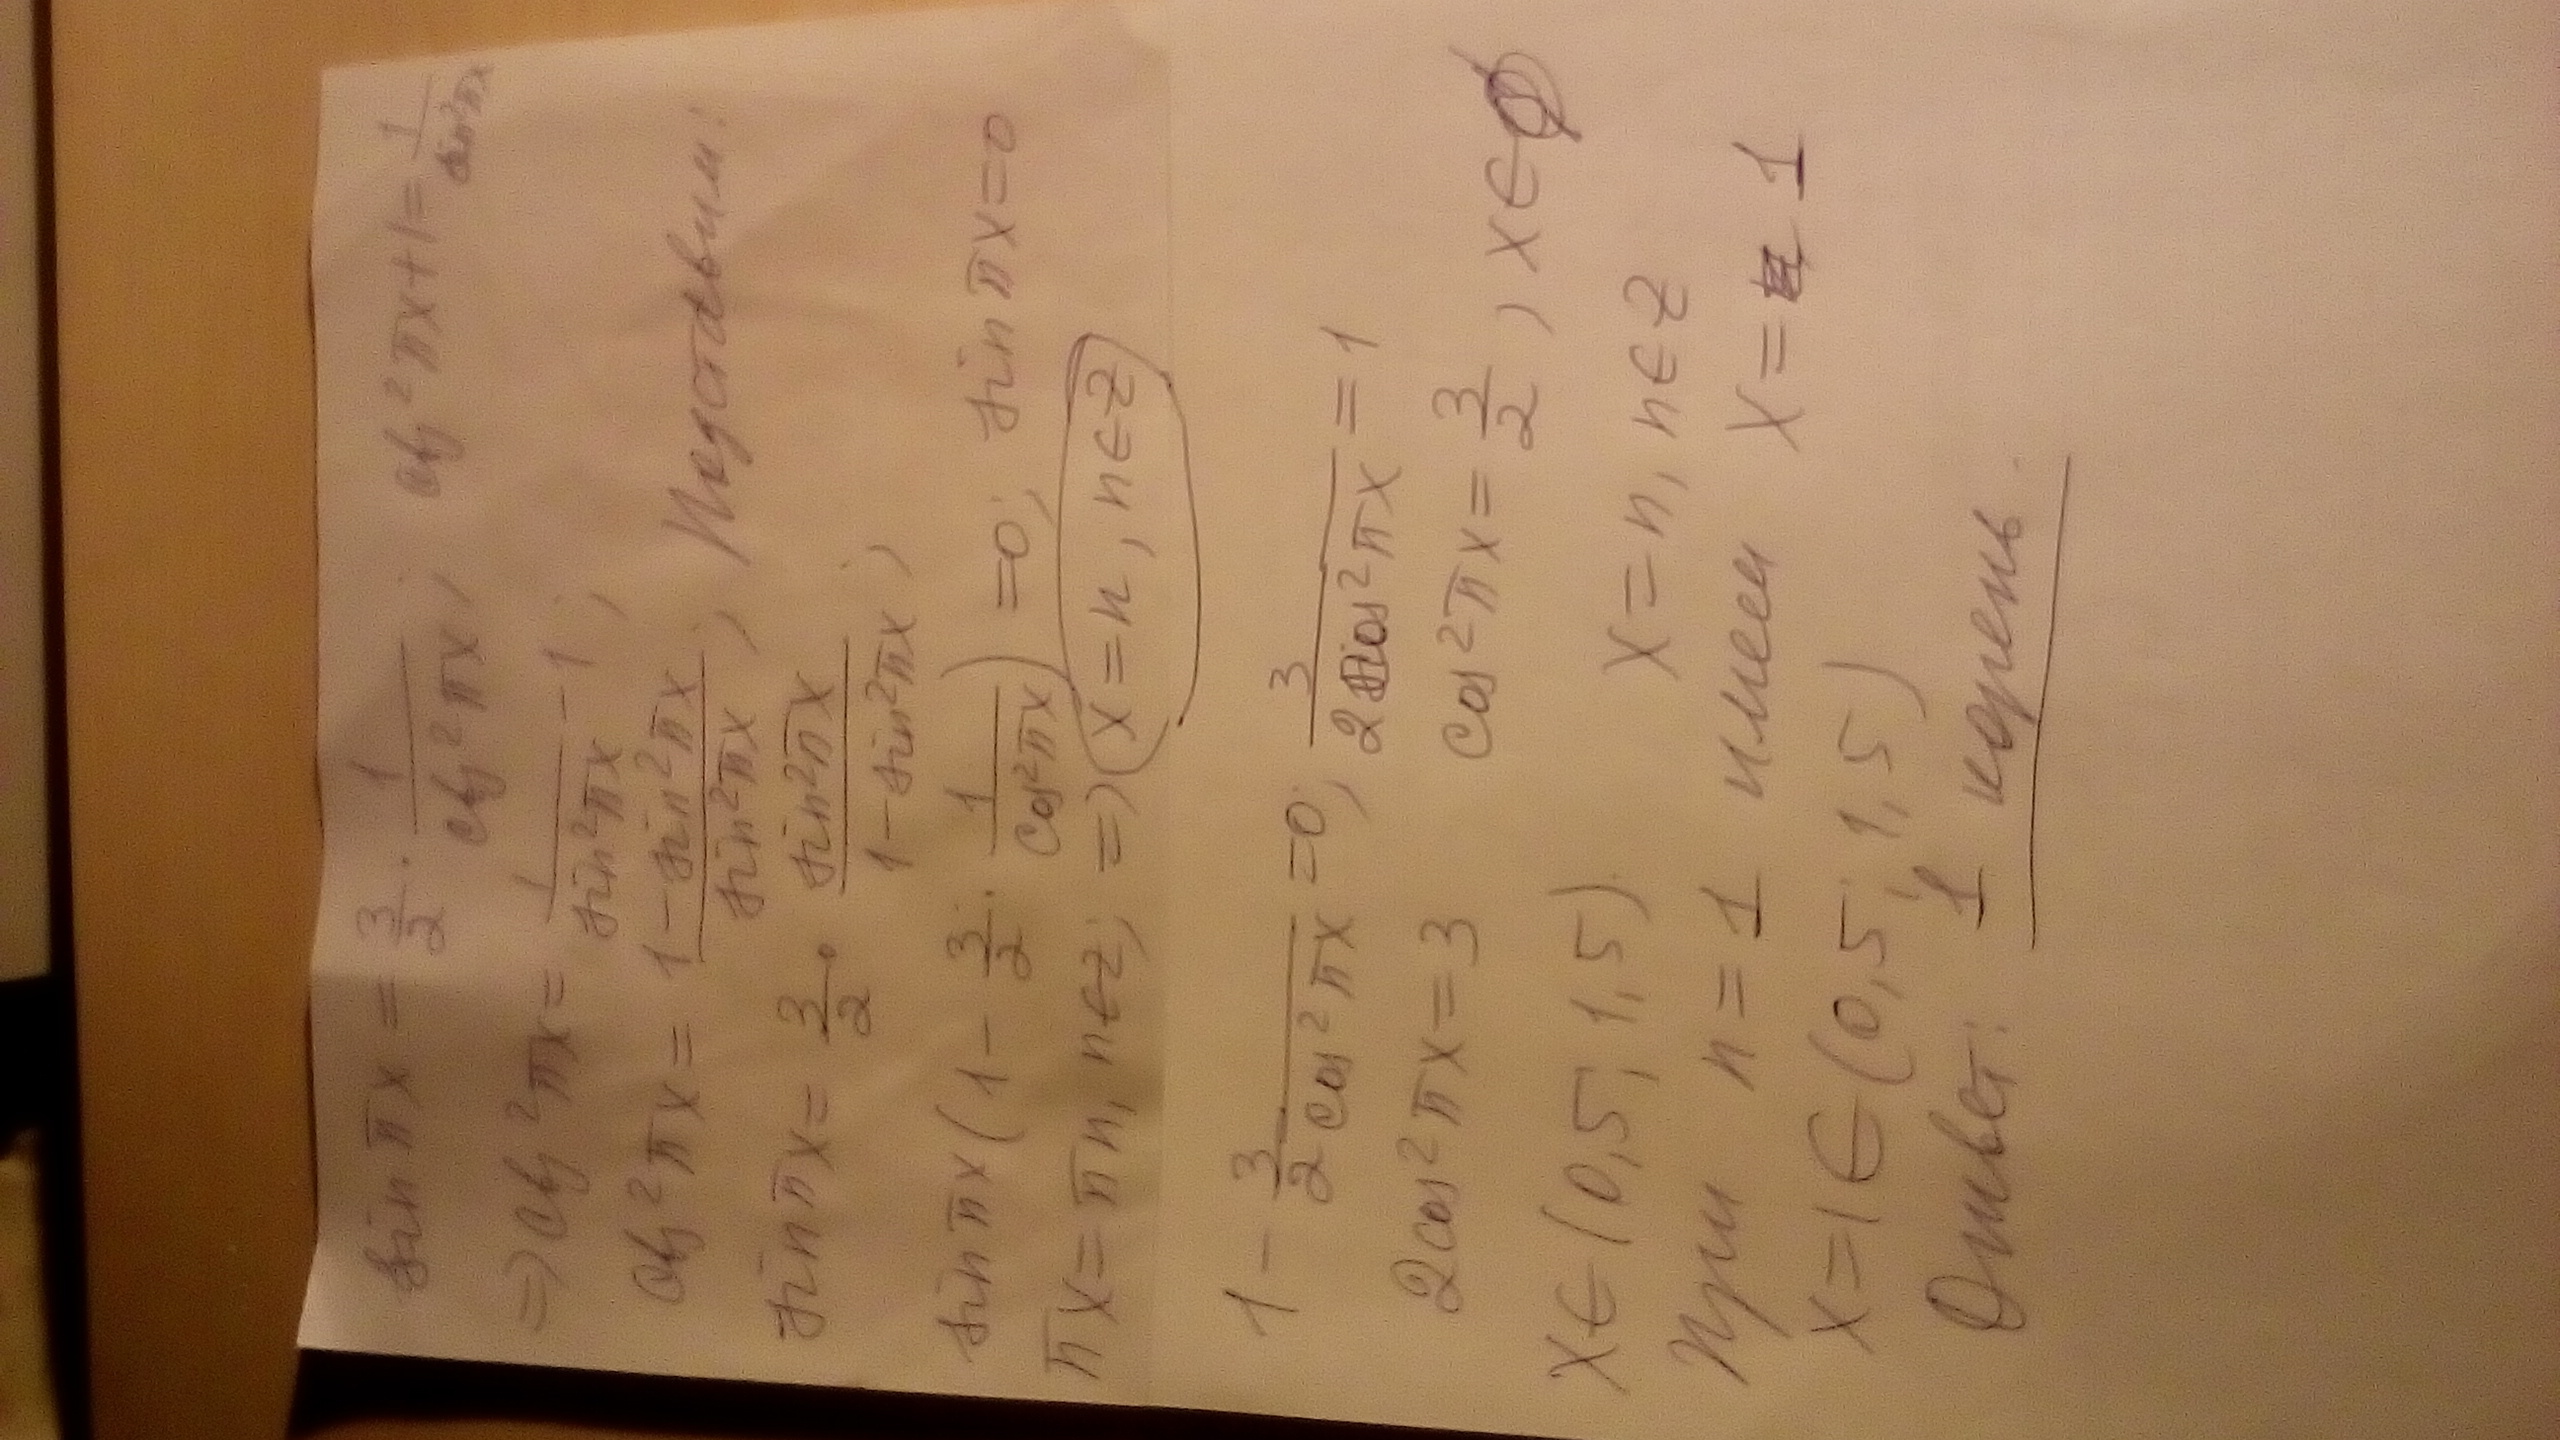 sin πx = 3/2 · 1/ctg²πx; ctg²πx+1= 1/sin²πx
=> ctg²πx = 1/sin²πx - 1;
ctg²πx = (1-sin²πx)/sin²πx; Подставим:
sin πx = 3/2 · sin²πx/(1-sin²πx);
sin πx (1 - 3/2 · 1/cos²πx) =0; sin πx=0
πx = πn, n∈Z; => x=n, n∈Z
1 - 3/(2cos²πx) =0; 3/(2cos²πx) = 1
2cos²πx = 3 cos²πx = 3/2, x∈∅
x∈(0,5; 1,5). x = n, n∈Z
При n = 1 имеем x = 1
x=1∈(0,5; 1,5)
Ответ: 1 корень.